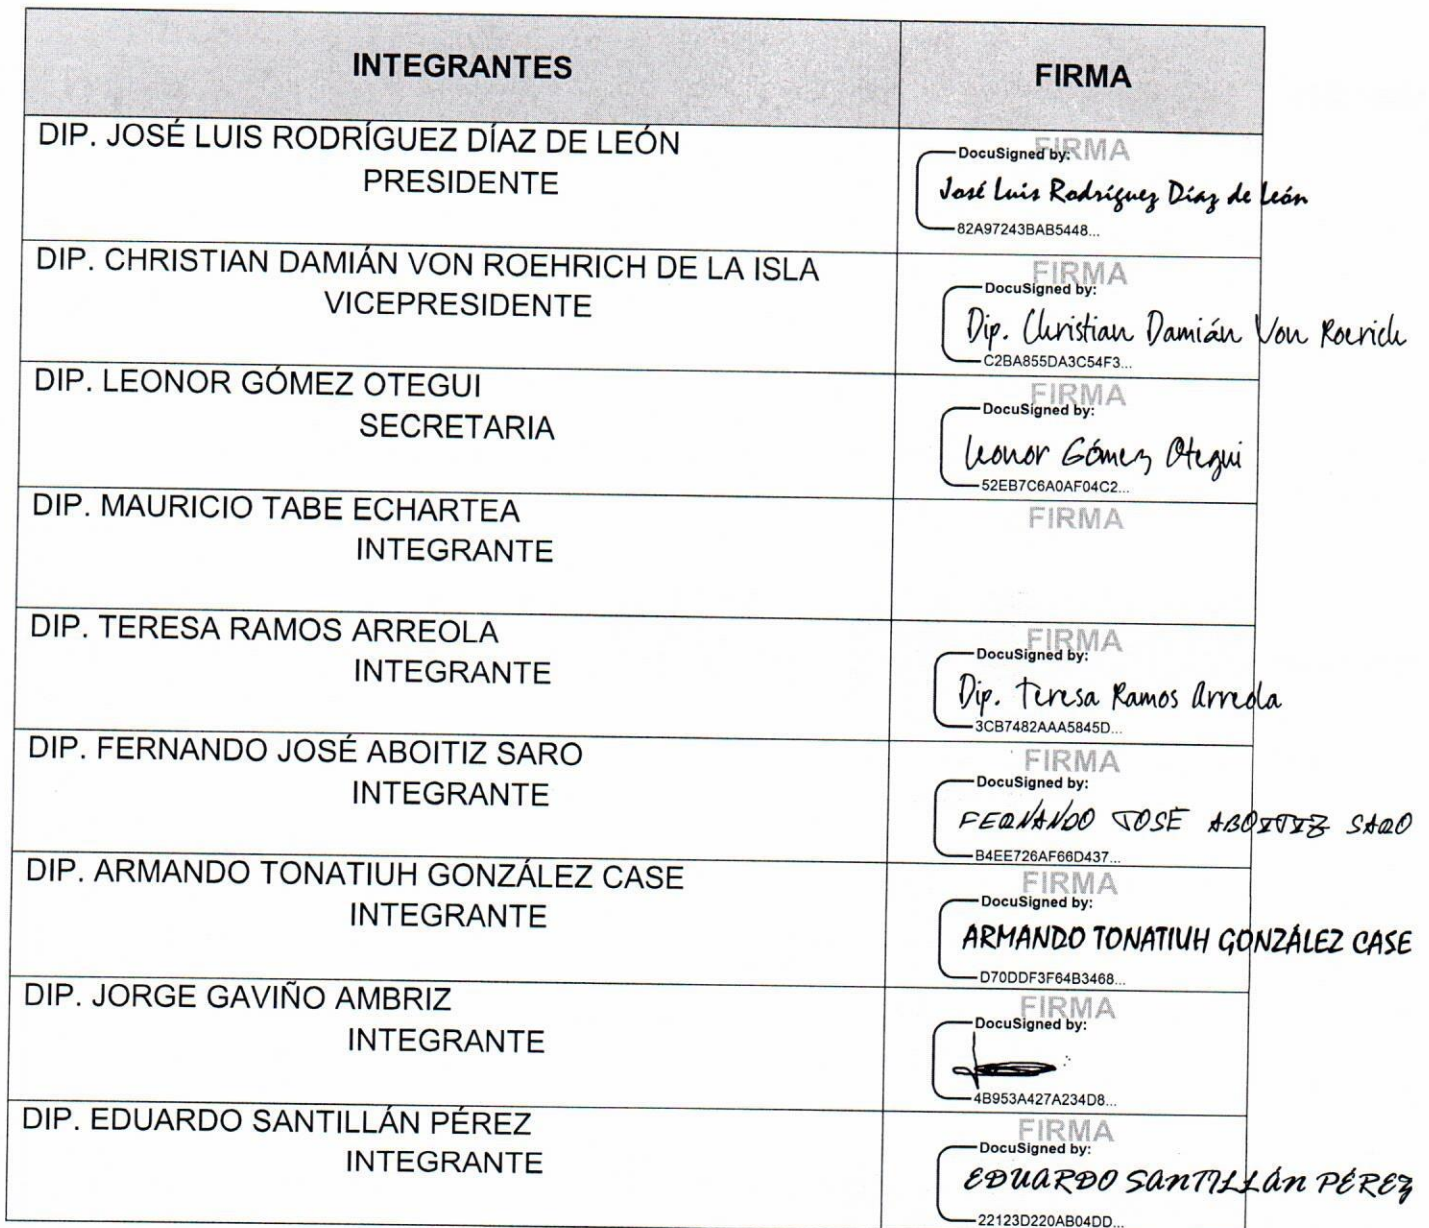 INTEGRANTES FIRMA
DIP. JOSÉ LUIS RODRÍGUEZ DÍAZ DE LEÓN
PRESIDENTE
FIRMA
DocuSigned by:
José Luis Rodríguez Díaz de León
82A97243BAB5448...
DIP. CHRISTIAN DAMIÁN VON ROEHRICH DE LA ISLA
VICEPRESIDENTE
FIRMA
DocuSigned by:
Dip. Christian Damián Von Roerich
C2BA855DA3C54F3...
DIP. LEONOR GÓMEZ OTEGUI
SECRETARIA
FIRMA
DocuSigned by:
Leonor Gómez Otegui
52EB7C6A0AF04C2...
DIP. MAURICIO TABE ECHARTEA
INTEGRANTE
FIRMA
DIP. TERESA RAMOS ARREOLA
INTEGRANTE
FIRMA
DocuSigned by:
Dip. Teresa Ramos Arreola
3CB7482AAA5845D...
DIP. FERNANDO JOSÉ ABOITIZ SARO
INTEGRANTE
FIRMA
DocuSigned by:
FERNANDO JOSÉ ABOITIZ SARO
B4EE726AF66D437...
DIP. ARMANDO TONATIUH GONZÁLEZ CASE
INTEGRANTE
FIRMA
DocuSigned by:
ARMANDO TONATIUH GONZÁLEZ CASE
D70DDF3F64B3468...
DIP. JORGE GAVIÑO AMBRIZ
INTEGRANTE
FIRMA
DocuSigned by:
4B953A427A234D8...
DIP. EDUARDO SANTILLÁN PÉREZ
INTEGRANTE
FIRMA
DocuSigned by:
EDUARDO SANTILLÁN PÉREZ
22123D220AB04DD...